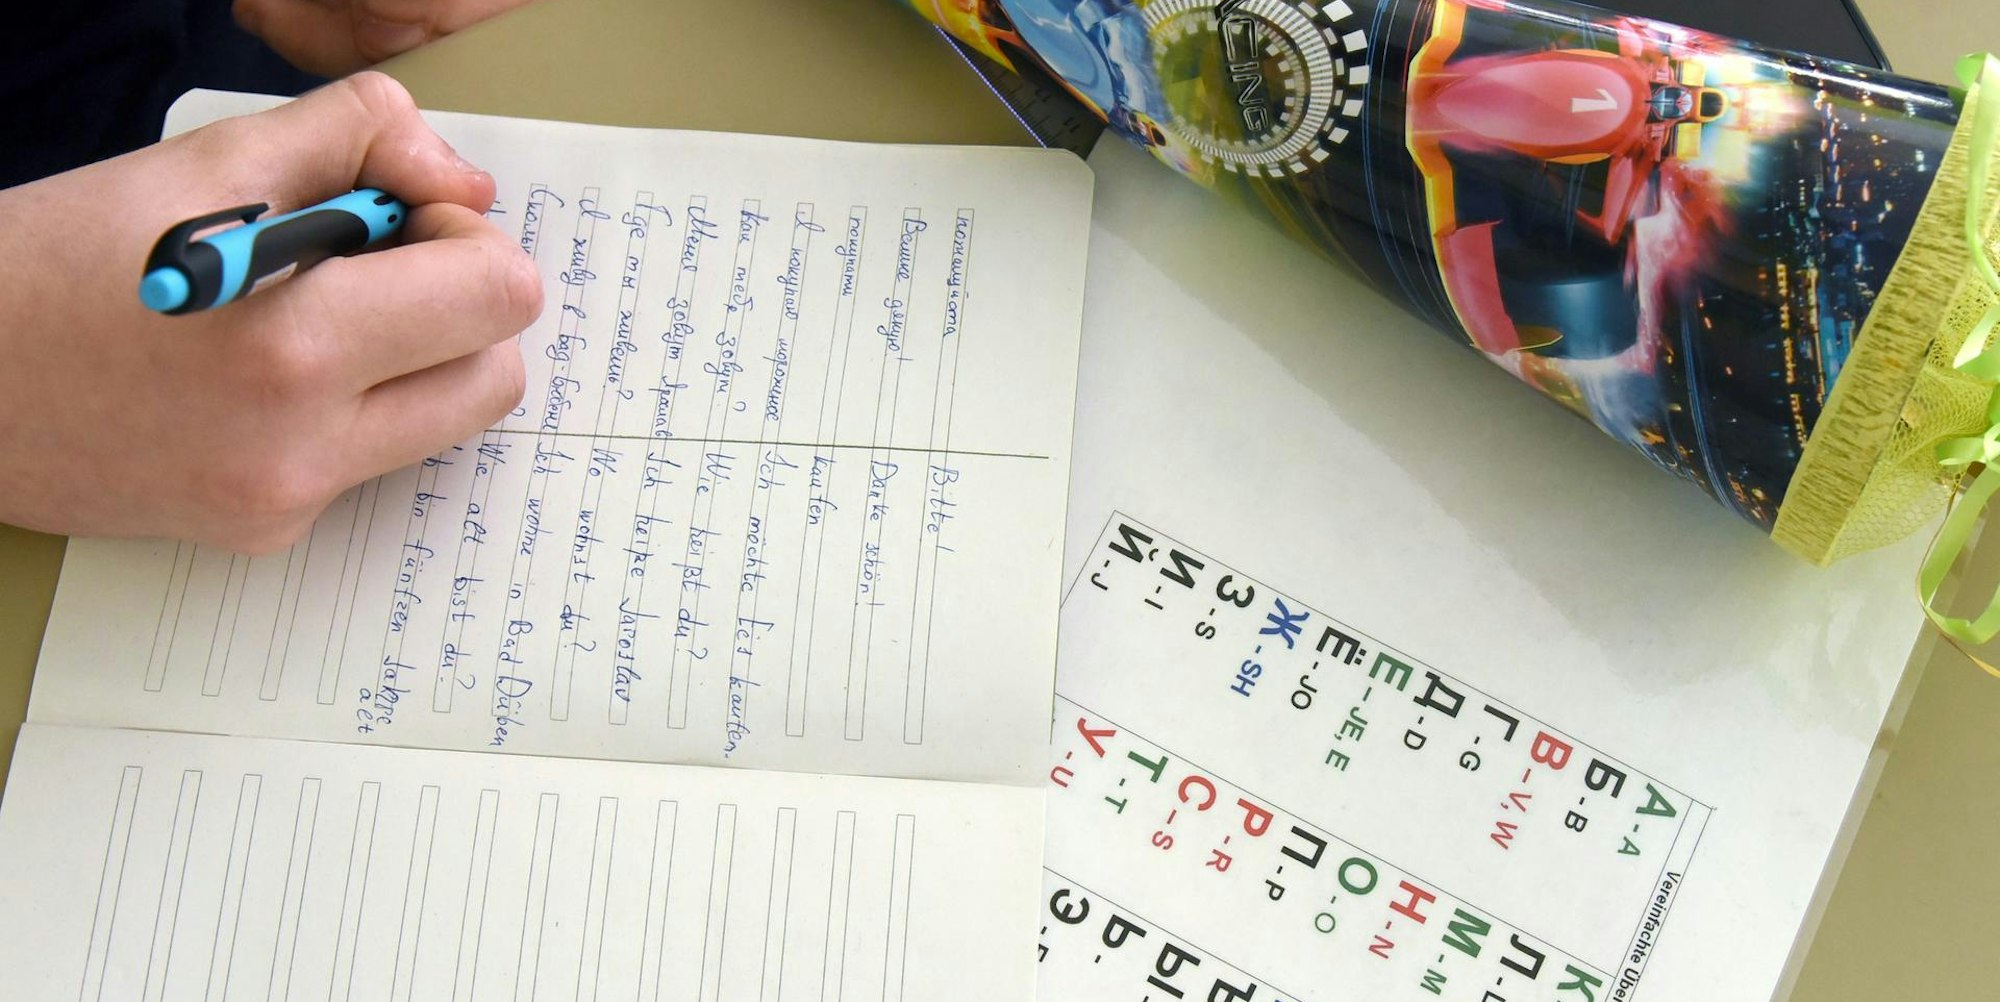 пожалуйста Bitte!
Велике дякую! Danke schön!
покупати kaufen
Я покупаю мороженое Ich möchte Eis kaufen.
Как тебя зовут? Wie heißt du?
Меня зовут Ярослав Ich heiße Jaroslav
Где ты живешь? Wo wohnst du?
Я живу в Бад-Дюбене Ich wohne in Bad Düben
? Wie alt bist du?
bin fünfzen Jahre
alt
RACING
1
Vereinfachte
А - A
Б - B
В - V, W
Г - G
Д - D
Е - JE, E
Ё - JO
Ж - SH
З - S
И - I
Й - J
К
Л -
М - M
Н - N
О - O
П - P
Р - R
С - S
Т - T
У - U
Ы
Ь -
Э -